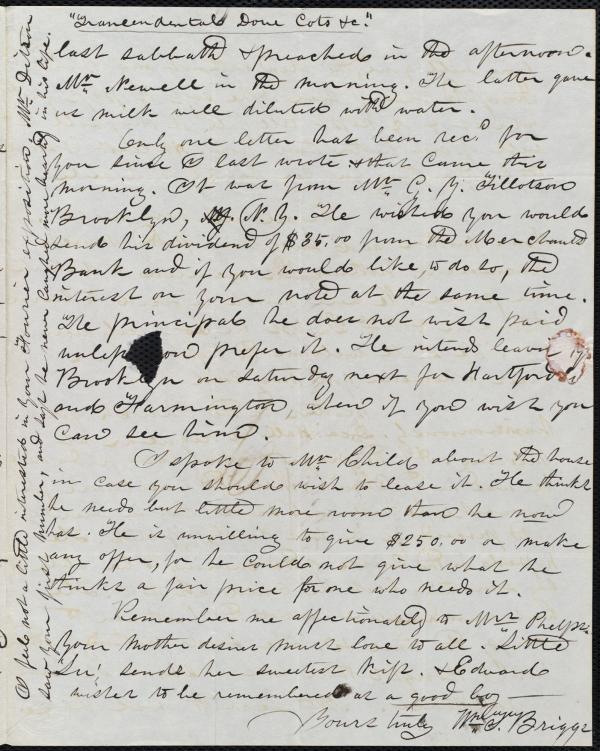 "Trancendentals Dove Cots &c."
last sabbath & preached in the afternoon.
Mr. Newell in the morning. The latter gave
us milk well diluted with water.
Only one letter has been recd for
you since I last wrote & that came this
morning. It was from Mr. C. Y. Tillotson
Brooklyn, N.Y. He wished you would
send his dividend of $35.00 from the Merchants
Bank and if you would like, to do so, the
interest on your note at the same time.
The principal he does not wish paid
unless you prefer it. He intends leav
Brooklyn on Saturday next for Hartford
and Farmington, when if you wish you
can see him.
I spoke to Mr. Child about the house
in case you should wish to lease it. He thinks
he needs but little more room than he now
has. He is unwilling to give $250.00 or make
any offer, for he could not give what he
thinks a fair price for one who needs it.
Remember me affectionately to Mrs Phelps.
Your Mother desires much love to all. "Little
Lu" sends her sweetest kiss. & Edward
wishes to be remembered as a good boy —
Yours truly Wm C. Briggs
I feel not a little interested in your Fourier exposition. Mr.
saw your first number, and says he never laughed more heartily in his life.